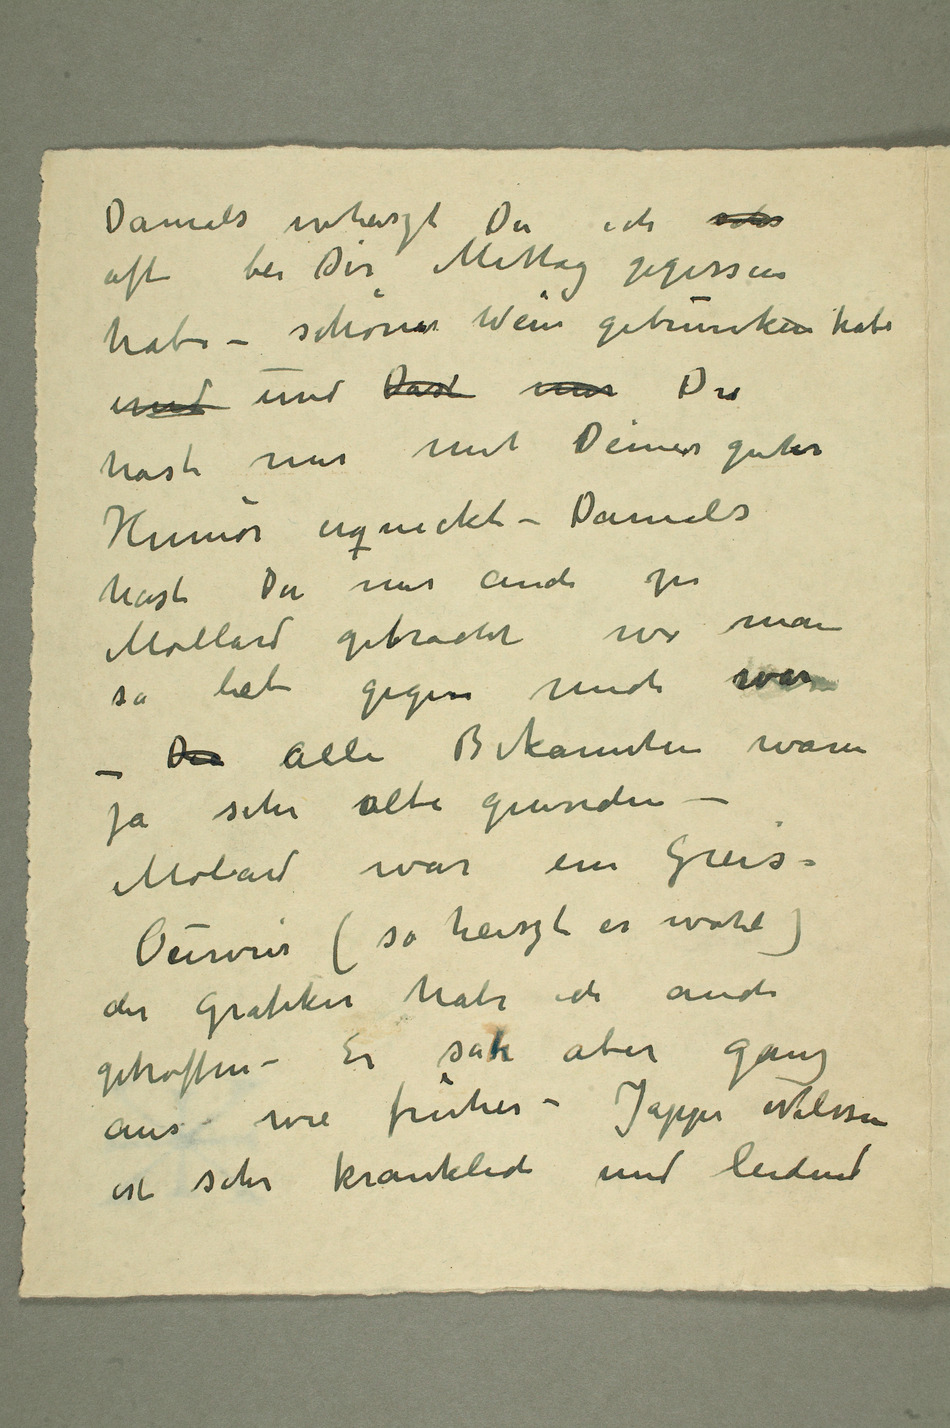 Damals weiszt Du ich
oft bei Dir Mittag gegessen
habe – schönen Wein getrunken habe
~~und~~ und ~~Dast~~ ~~mir~~ Du
hast mir mit Deiner guter
Humör erquickt – Damals
hast Du mir auch zu
Mollard gebracht wo man
so lieb gegen mich war
– ~~Du~~ Alle Bekannten waren
ja sehr alte geworden –
Molard war ein Greis –
(so heiszt er wohl)
der Grafiker habe ich auch
getroffen – Er sah aber ganz
aus wie früher – Jappe Nilssen
ist sehr kranklich und leidend